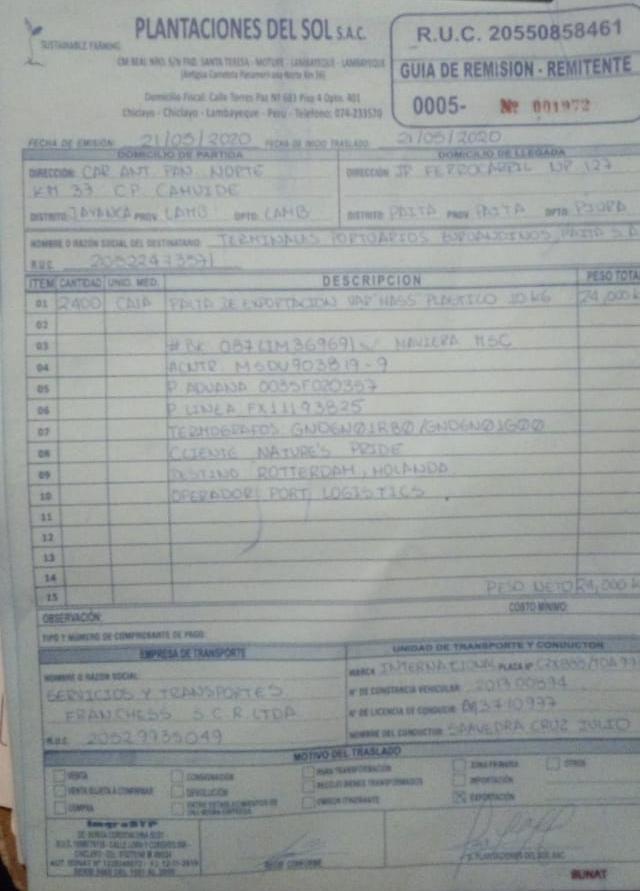 SUSTAINABLE FARMING
PLANTACIONES DEL SOL S.A.C.
CAR. REAL NRO. S/N FND. SANTA TERESA - MOTUPE - LAMBAYEQUE - LAMBAYEQUE
(Antigua Carretera Panamericana Norte Km 36)
Domicilio Fiscal: Calle Torres Paz Nº 683 Piso 4 Dpto. 401
Chiclayo - Chiclayo - Lambayeque - Peru - Telefono: 074-233570
R.U.C. 20550858461
GUIA DE REMISION - REMITENTE
0005- Nº 001972
FECHA DE EMISIÓN: 21/05/2020 FECHA DE INICIO TRASLADO: 21/05/2020
DOMICILIO DE PARTIDA
DIRECCIÓN: CAR. ANT. PAN. NORTE
KM 37 C.P. CAHUIDE
DISTRITO: JAYANCA PROV. LAMB DPTO. LAMB
DOMICILIO DE LLEGADA
DIRECCIÓN JR FERROCARRIL Nº 127
DISTRITO: PAITA PROV. PAITA DPTO. PIURA
NOMBRE O RAZON SOCIAL DEL DESTINATARIO: TERMINALES PORTUARIOS EUROANDINOS PAITA S.A
R.U.C. 20522473571
ITEM CANTIDAD UNID. MED. DESCRIPCION PESO TOTAL
01 2400 CAJA PALTA DE EXPORTACION VAR HASS PLASTICO 10 KG 24,000 K
02
03 #BK 087LIM369691 NAVIERA MSC
04 #CNTR MSDU903819-9
05 P. ADUANA 0035F020357
06 P. LINEA FX11193825
07 TERMOGRAFOS GNDGN01RB0/GNDGN01G00
08 CLIENTE NATURE'S PRIDE
09 DESTINO ROTTERDAM, HOLANDA
10 OPERADOR PORT LOGISTICS
11
12
13
14
15 PESO NETO 24,000 K
OBSERVACIÓN: COSTO MINIMO:
TIPO Y NÚMERO DE COMPROBANTE DE PAGO:
EMPRESA DE TRANSPORTE
NOMBRE O RAZON SOCIAL
SERVICIOS Y TRANSPORTES
FRANCHESS S.C.R.LTDA
R.U.C. 20529935049
UNIDAD DE TRANSPORTE Y CONDUCTOR
MARCA INTERNATIONAL PLACA Nº
Nº DE CONSTANCIA VEHICULAR
Nº DE LICENCIA DE CONDUCIR
NOMBRE DEL CONDUCTOR SAAVEDRA CRUZ JULIO
MOTIVO DEL TRASLADO
VENTA
VENTA SUJETA A CONFIRMAR
COMPRA
CONSIGNACIÓN
DEVOLUCIÓN
ENTRE ESTABLECIMIENTOS DE
UNA MISMA EMPRESA
PARA TRANSFORMACIÓN
RECOJO BIENES TRANSFORMADOS
EMISOR ITINERANTE
ZONA PRIMARIA
IMPORTACIÓN
EXPORTACIÓN
OTROS
RECIBI CONFORME
P. PLANTACIONES DEL SOL SAC
SUNAT